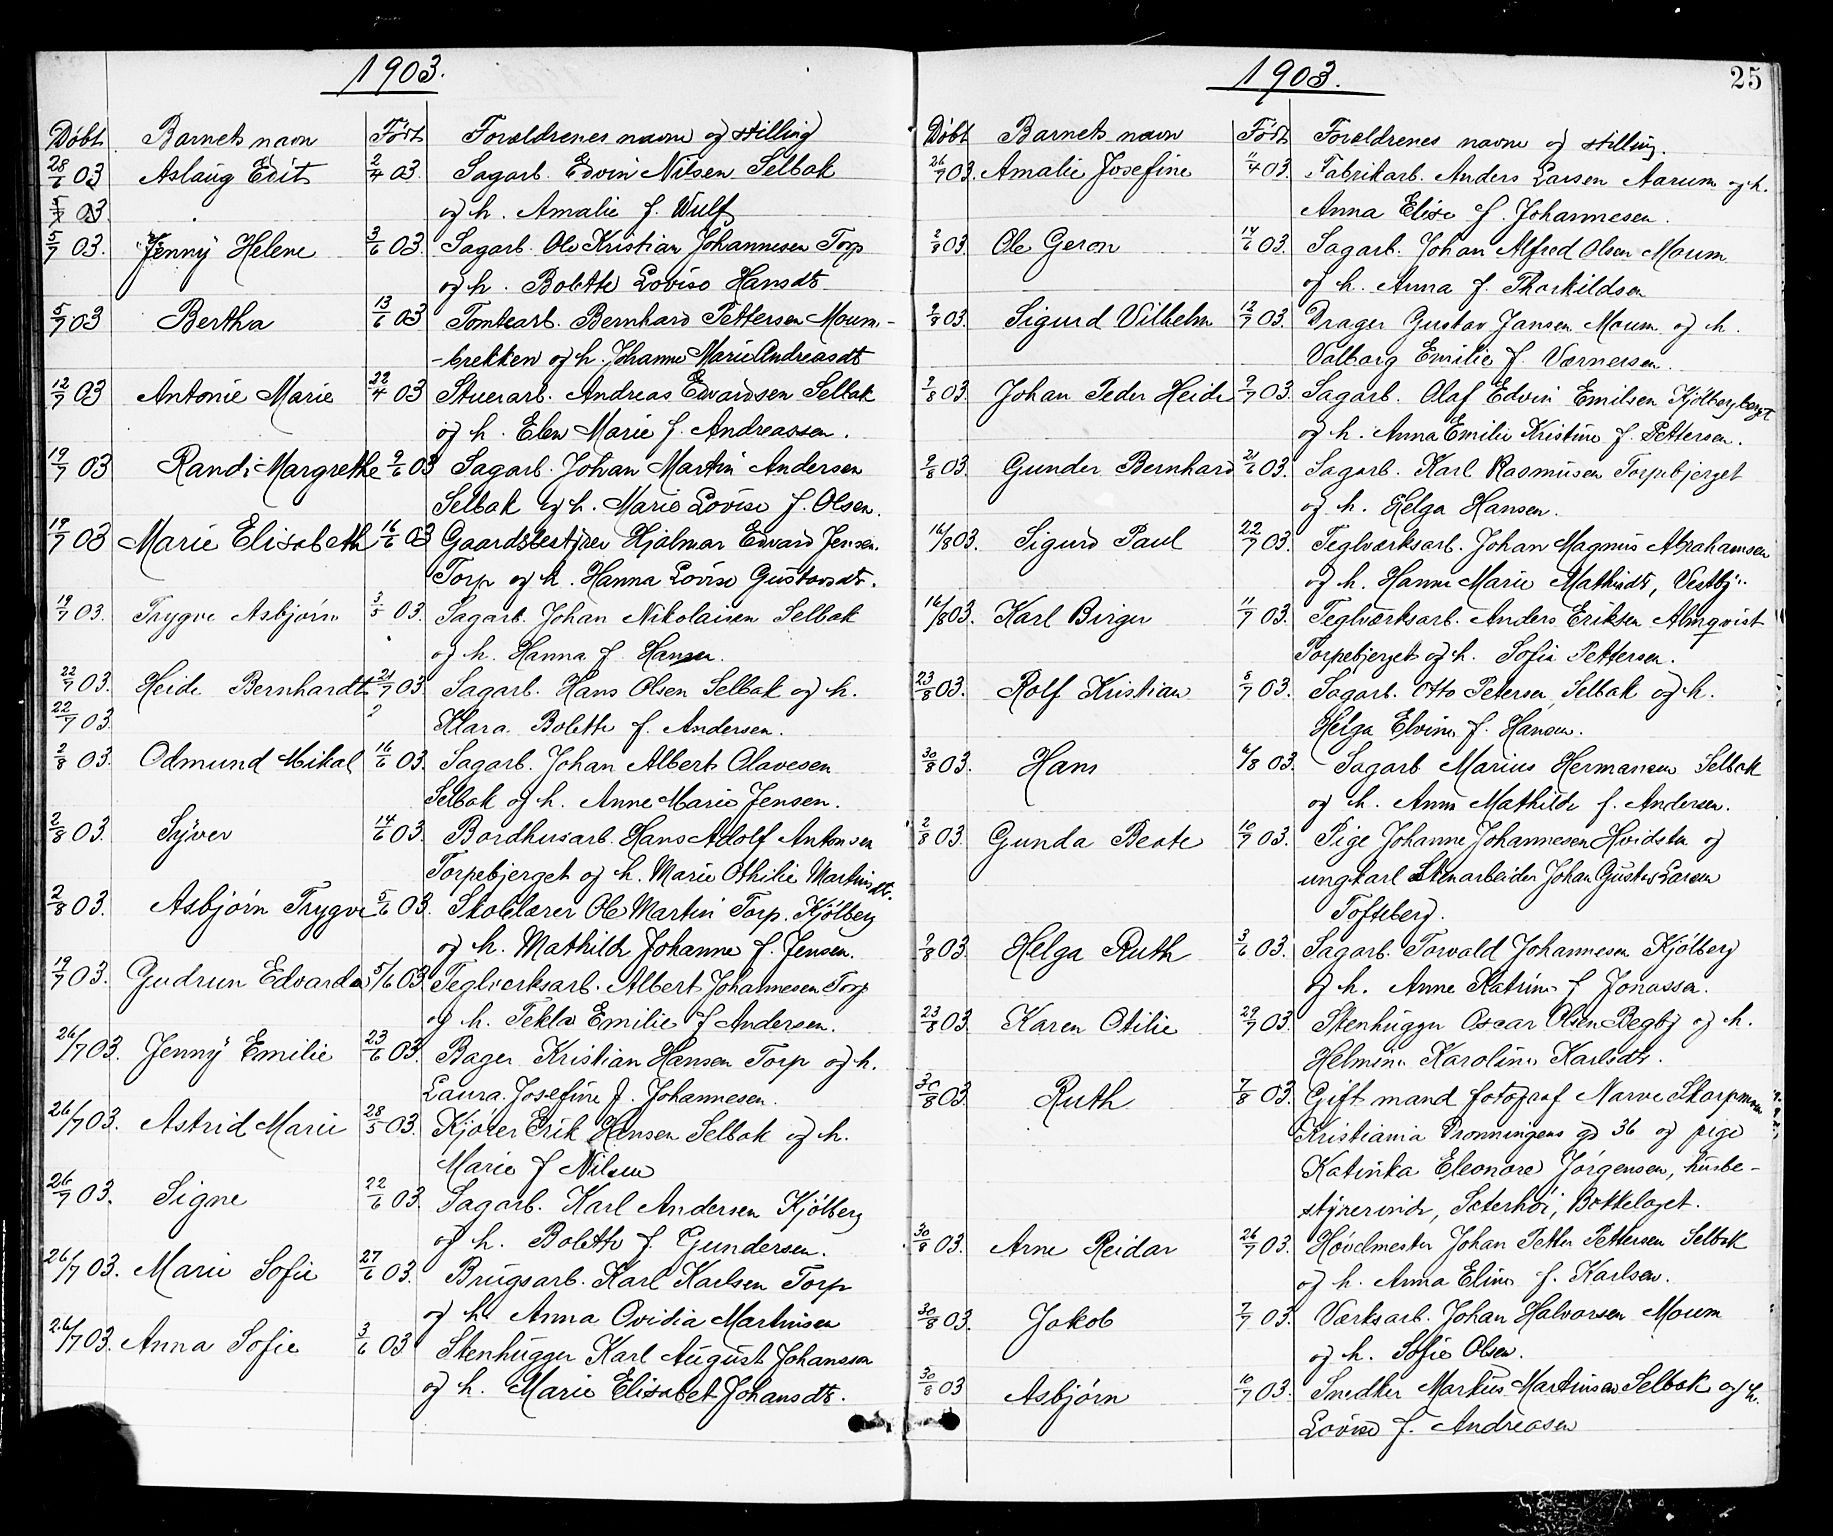 1903.
Døbt Barnets navn Født Forældrenes navne og stilling
28/6 03 Aslaug Edit 2/4 03 Sagarb. Edvin Nilsen Selbak
5/7 03 og h. Amalie f. Wulf
5/7 03. Jenny Helene 3/6 03. Sagarb. Ole Kristian Johannesen Torp
og h. Bolette Lovise Hansdt
5/7 03 Bertha 13/6 03 Tomtearb. Bernhard Pettersen Moum-
-brekken og h. Johanne Marie Andreasdt
12/7 03 Antonie Marie 22/4 03 Stuerarb. Andreas Edvardsen Selbak
og h. Elen Marie f. Andreassen.
19/7 03 Randi Margrethe 9/6 03 Sagarb. Johan Martin Andersen
Selbak og h. Marie Lovise f. Olsen.
19/7 03 Marie Elisabeth 16/6 03 Gaardsbestyrer Hjalmar Edvard Jensen.
Torp og h. Hanna Lovise Gustavsdt.
19/7 03. Trygve Asbjørn 3/5 03. Sagarb. Johan Nikolaisen Selbak
og h. Hanna f. Hansen.
22/7 03. Heide Bernhardt 21/7 03. Sagarb. Hans Olsen Selbak og h.
22/7 03 2 Klara Bolette f. Andersen.
2/8 03. Odmund Mikal 16/6 03. Sagarb. Johan Albert Olavesen
Selbak og h. Anne Marie Jensen.
2/8 03. Syver 14/6 03. Bordhusarb. Hans Adolf Antonsen
Torpebjerget og h. Marie Othilie Martinsdt.
2/8 03. Asbjørn Trygve 5/6 03. Skolelærer Ole Martin Torp. Kjølberg
og h. Mathilde Johanne f. Jensen.
19/7 03. Gudrun Edvarda 5/6 03 Teglverksarb. Albert Johannesen Torp
og h. Tekla Emilie f Andersen.
26/7 03. Jenny Emilie 23/6 03. Bager Kristian Hansen Torp og h.
Laura Josefine f. Johannesen.
26/7 03. Astrid Marie 28/5 03. Kjører Erik Hansen Selbak og h.
Marie f Nilsen
26/7 03. Signe 22/6 03. Sagarb. Karl Andersen Kjølberg
og h. Bolette f. Gundersen.
26/7 03. Marie Sofie 27/6 03. Brugsarb. Karl Karlsen Torp
og h. Anna Ovidia Martinsen
26/7 03. Anna Sofie 3/6 03 Stenhugger Karl August Johansson
og h. Marie Elisabet Johansdt.
1903. 25
Døbt Barnets navn Født Forældrenes navne og stilling.
26/7 03. Amalie Josefine 11/4 03. Fabrikarb. Anders Larsen Aarum og h.
Anna Elise f. Johannesen.
2/8 03. Ole Geron 14/6 03. Sagarb. Johan Alfred Olsen Moum
og h. Anna f. Thorkildsen
9/8 03. Sigurd Vilhelm 12/7 03. Drager Gustav Jansen Moum og h.
Valborg Emilie f. Vernersen.
9/8 03. Johan Peder Heide 9/7 03. Sagarb. Olaf Edvin Emilsen Kjølbergberget
og h. Anna Emilie Kristine f. Pettersen.
9/8 03. Gunder Bernhard 21/6 03. Sagarb. Karl Rasmusen Torpebjerget
og h. Helga Hansen.
16/8 03. Sigurd Paul 22/7 03. Teglverksarb. Johan Magnus Abrahamsen
og h. Hanna Marie Mathisdt, Vestby.
16/8 03. Karl Birger 11/7 03. Teglverksarb. Anders Eriksen Almqvist
Torpebjerget og h. Sofie Pettersen.
23/8 03. Rolf Kristian 8/7 03. Sagarb. Otto Petersen, Selbak og h.
Helga Elvine f. Hansen.
30/8 03. Hans 6/8 03. Sagarb Marius Hermansen Selbak
og h. Anna Mathilde f. Andersen.
2/8 03. Gunda Beate 10/7 03. Pige Johanne Johannesen Hvidsten og
ungkarl Stenarbeider Johan Gustav Larsen
Tofteberg.
9/8 03. Helga Ruth 3/6 03. Sagarb. Torvald Johannesen Kjølberg
og h. Anne Katrine f Jonassen.
23/8 03. Karen Otilie 29/7 03. Stenhugger Oscar Olsen Begby og h.
Helmine Karoline Karlsdt.
30/8 03. Ruth 7/8 03. Gift mand fotograf Narve Skarpmoen
Kristiania Dronningens gd 36 og pige
Katinka Eleonore Jørgensen, husbe-
styrerinde, Seterhøi, Bakkelaget.
30/8 03. Arne Reidar 26/7 03. Høvelmester Johan Petter Pettersen Selbak
og h. Anna Eline f. Karlsen.
30/8 03. Jakob 7/7 03. Værksarb. Johan Halvorsen Moum
og h. Sofie Olsen.
30/8 03 Asbjørn 10/7 03. Snedker Markus Martinsen Selbak og h.
Lovise f. Andreasen